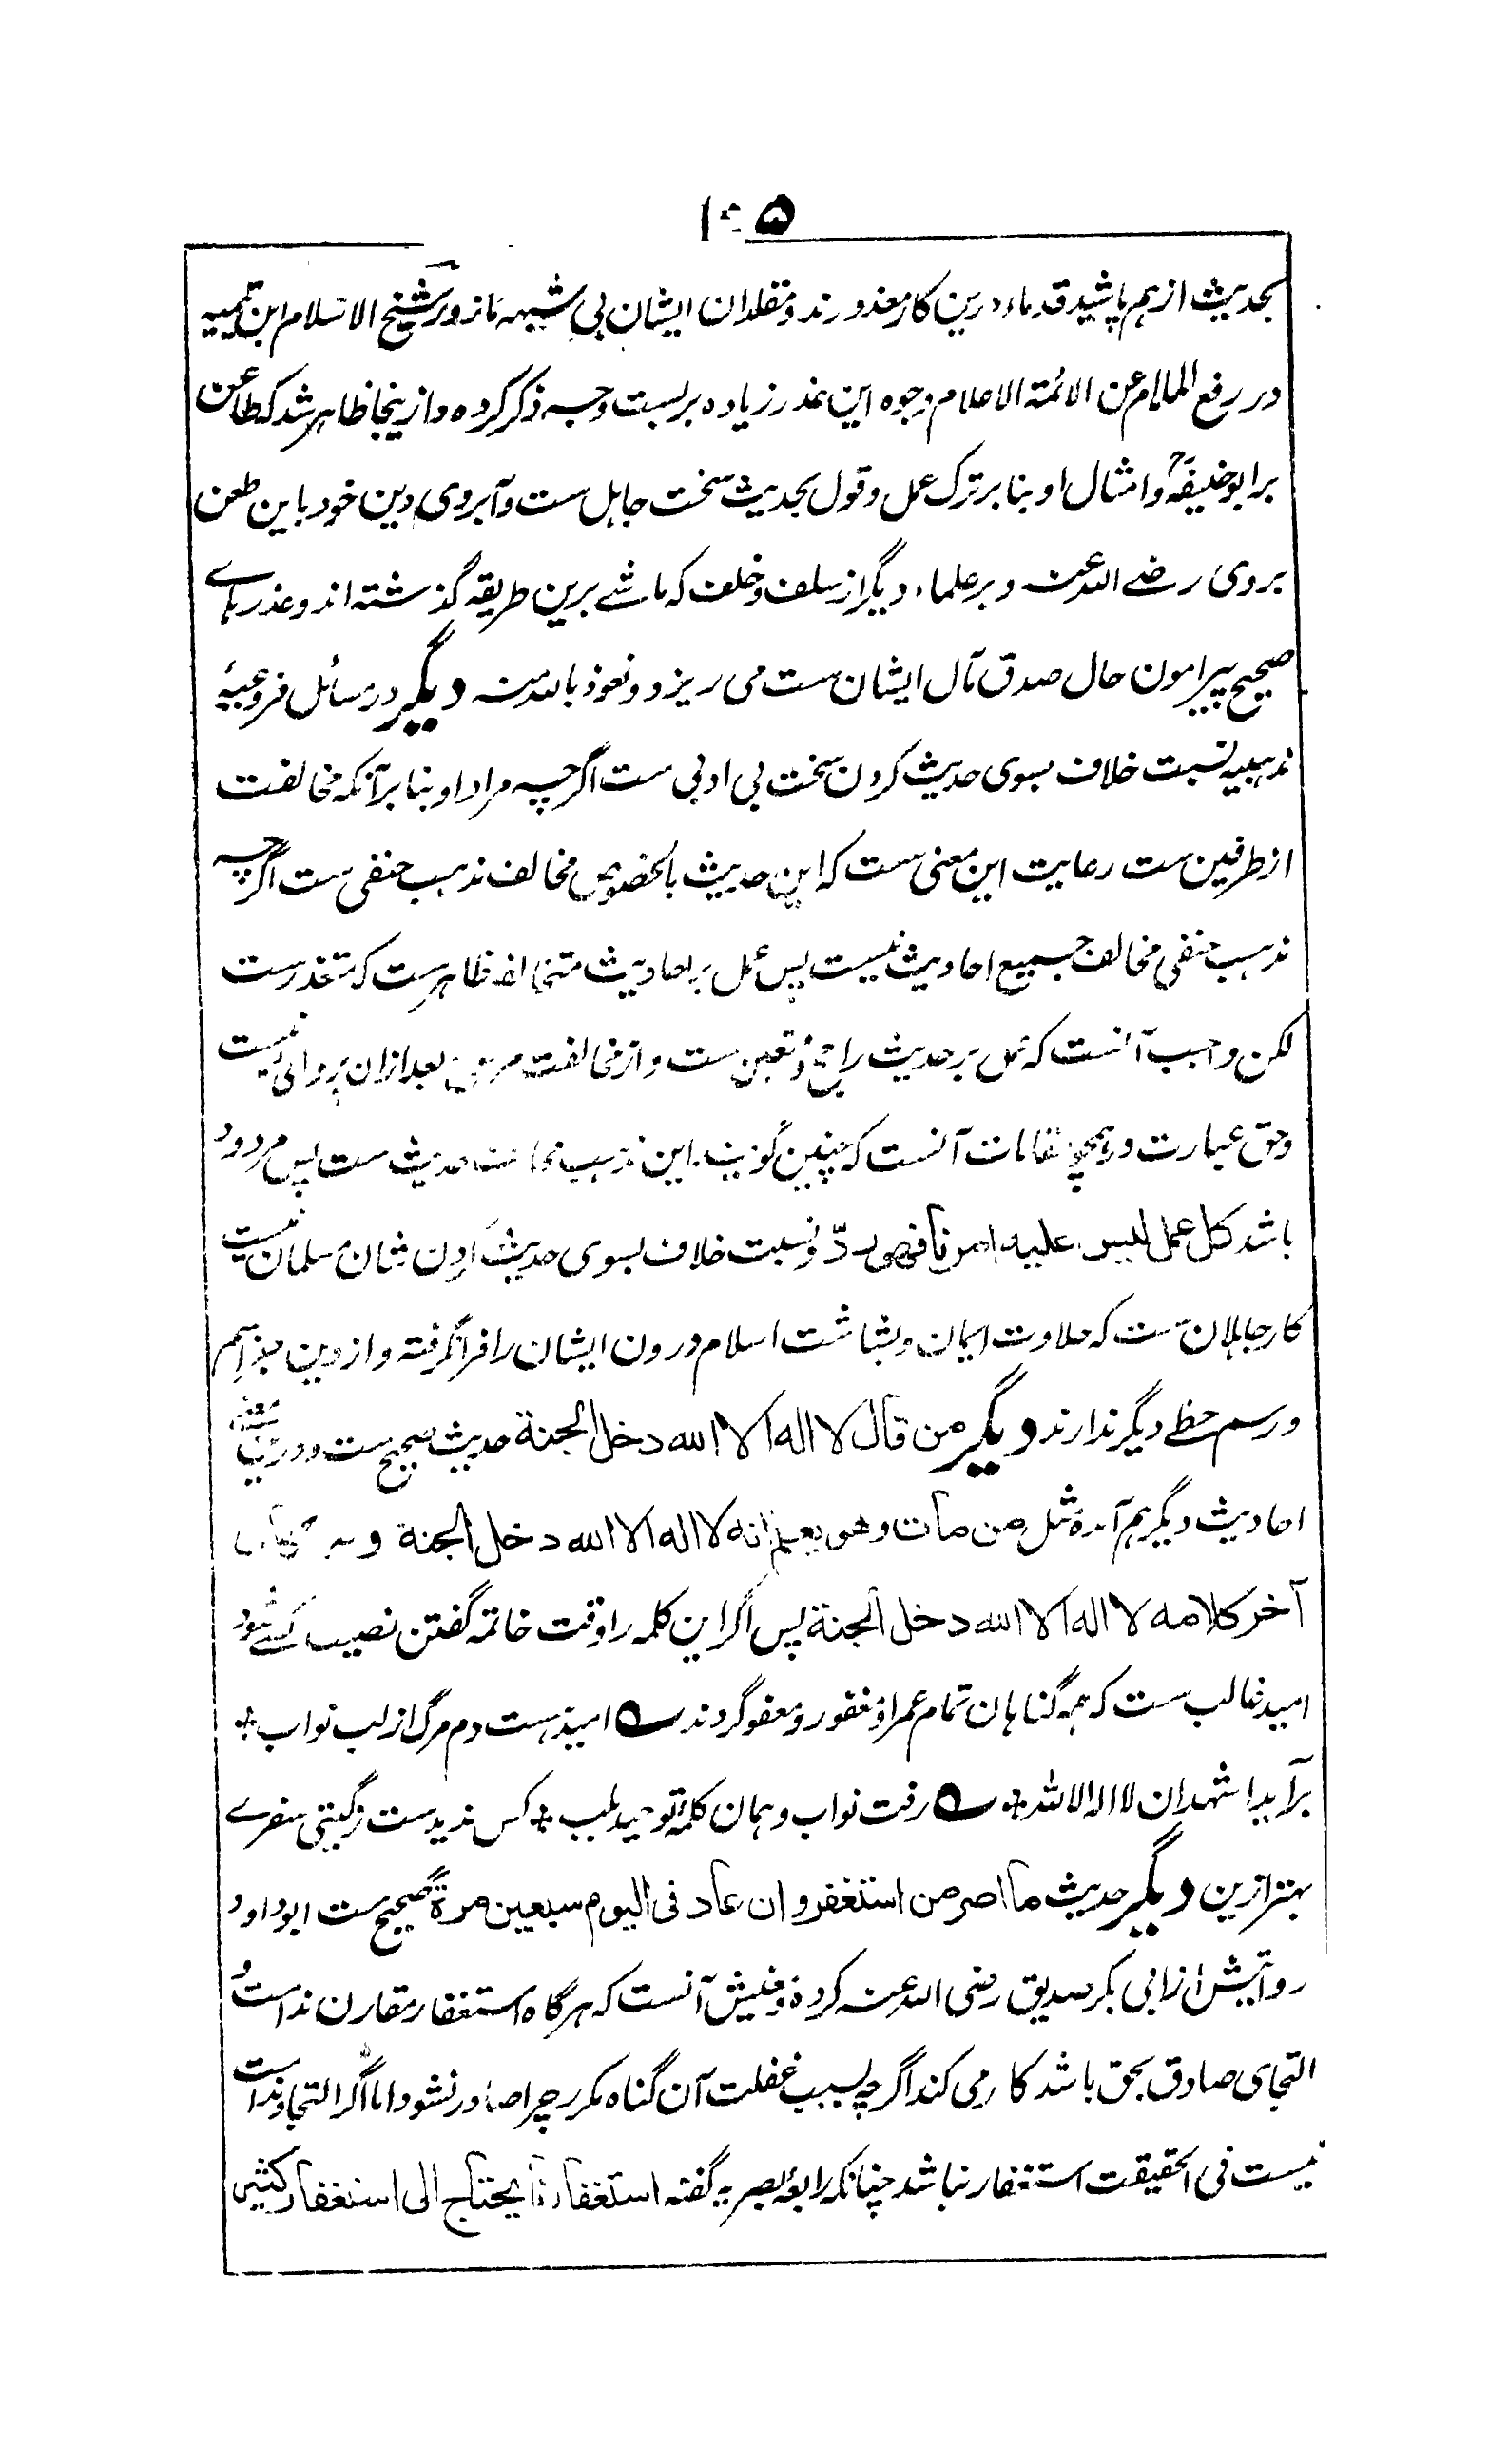 ۱۰۵
بحدیث از هم پاشید قدماء درین کار معذورند و مقلدان ایشان بی شبهه مازور شیخ الاسلام ابن تیمیه
در رفع الملام عن الائمة الاعلام وجوه این عذر زیاده بر بست وجه ذکر کرده و ازینجا ظاهر شد که طاعن
بر ابوحنیفهؒ و امثال او بنا بر ترک عمل و قول بحدیث سخت جاهل ست و آبروی دین خود باین طعن
بر وی رضے الله عنه و بر علماء دیگر از سلف و خلف که ماشے برین طریقه گذشته اند و عذرهاے
صحیح پیرامون حال صدق مآل ایشان ست می ریزد و نعوذ بالله منه دیگر در مسائل فروعیهٔ
مذهبیه نسبت خلاف بسوی حدیث کردن سخت بی ادبی ست اگرچه مراد او بنا بر آنکه مخالفت
از طرفین ست رعایت این معنی ست که این حدیث بالخصوص مخالف مذهب حنفی ست اگرچه
مذهب حنفی مخالف جمیع احادیث نیست پس عمل بر احادیث متخالفه ظاهرست که متعذرست
لکن واجب آنست که عمل بر حدیث راجح و متعین ست و از مخالفت مرجوح بعد ازان پروائی نیست
و حق عبارت در همچو مقامات آنست که چنین گویند این مذهب مخالف حدیث ست پس مردود
باشد کل عمل لیس علیه امرنا فهو ردّ و نسبت خلاف بسوی حدیث کردن شان مسلمان نیست
کار جاهلان ست که حلاوت ایمان و بشاشت اسلام درون ایشان را فرا نگرفته و از دین جز اسم
و رسم حظے دیگر ندارند دیگر من قال لا اله الا الله دخل الجنة حدیث صحیح ست و درین معنی
احادیث دیگر هم آمده مثل من مات وهو یعلم انه لا اله الا الله دخل الجنة و من کان
آخر کلامه لا اله الا الله دخل الجنة پس اگر این کلمه را وقت خاتمه گفتن نصیب کسے شود
امید غالب ست که همه گناهان تمام عمر او مغفور و معفو گردند ؎ امید هست دم مرگ از لب نواب *
برآید اشهد ان لا اله الا الله * ؎ رفت نواب و همان کلمهٔ توحید بلب * کس ندیدست ز گیتی سفرے
بهتر ازین دیگر حدیث ما اصر من استغفر و ان عاد فی الیوم سبعین مرة صحیح ست ابوداود
روایتش از ابی بکر صدیق رضی الله عنه کرده و معنیش آنست که هرگاه استغفار مقارن ندامت و
التجای صادق بحق باشد کار می کند اگرچه بسبب غفلت آن گناه مکرر چرا صادر نشود اما اگر التجا و ندامت
نیست فی الحقیقت استغفار نباشد چنانکه رابعهٔ بصریه گفته استغفارنا یحتاج الی استغفار کثیر